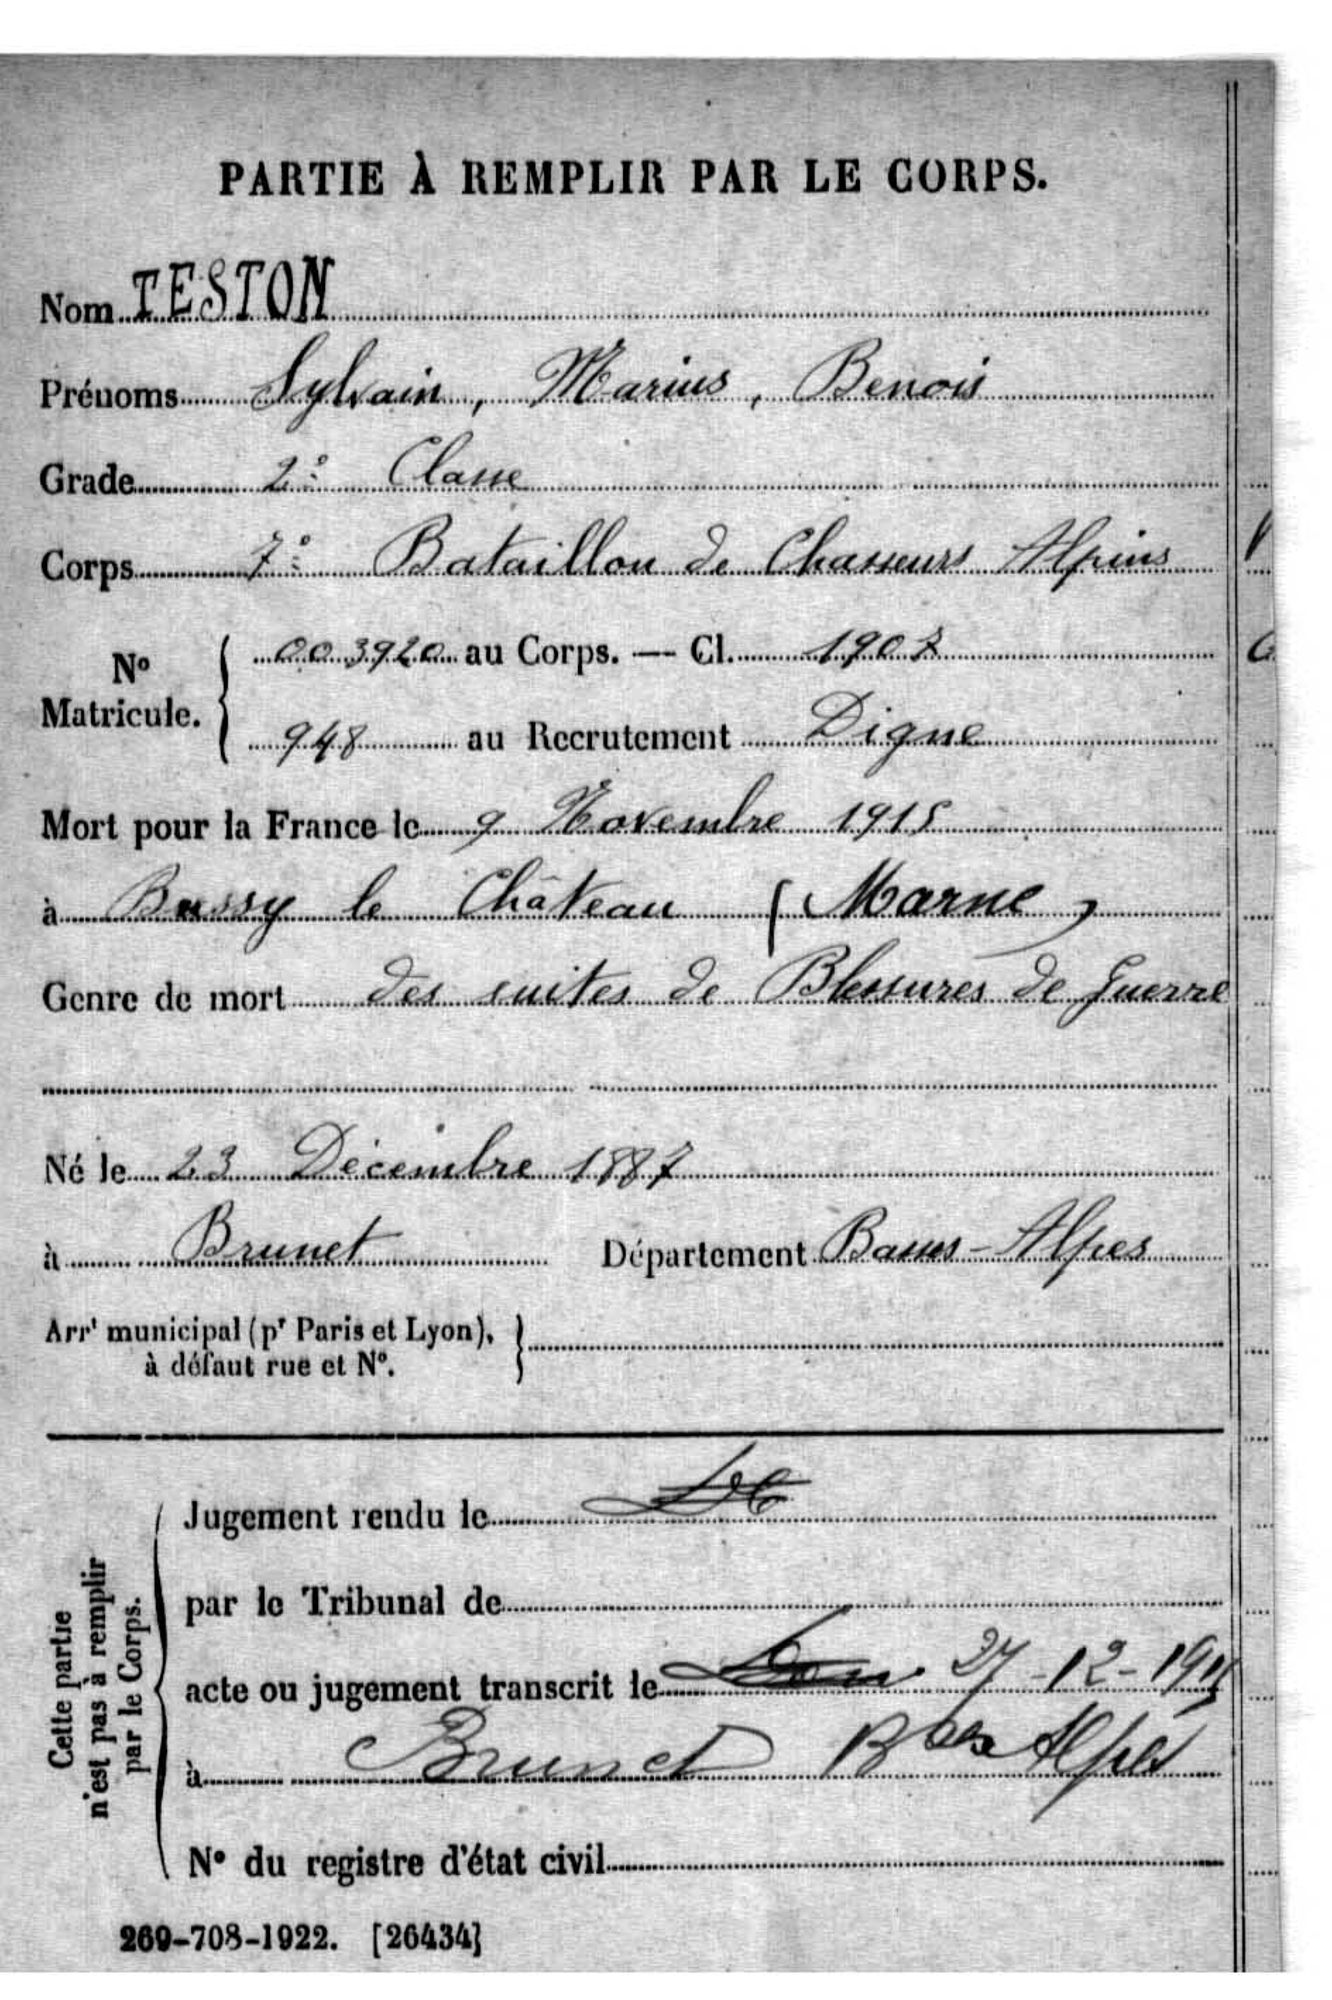 PARTIE À REMPLIR PAR LE CORPS.
Nom TESTON
Prénoms Sylvain, Marius, Benois
Grade 2e Classe
Corps 7e Bataillon de Chasseurs Alpins
No Matricule. { 003920 au Corps. — Cl. 1907
948 au Recrutement Digne
Mort pour la France le 9 Novembre 1915
à Bussy le Château (Marne)
Genre de mort des suites de Blessures de Guerre
Né le 23 Décembre 1887
à Brunet Département Basses-Alpes
Arrt municipal (pr Paris et Lyon),
à défaut rue et No.
Cette partie
n'est pas à remplir
par le Corps.
Jugement rendu le
par le Tribunal de
acte ou jugement transcrit le 27-12-1915
à Brunet Bses Alpes
No du registre d'état civil
269-708-1922. [26434]